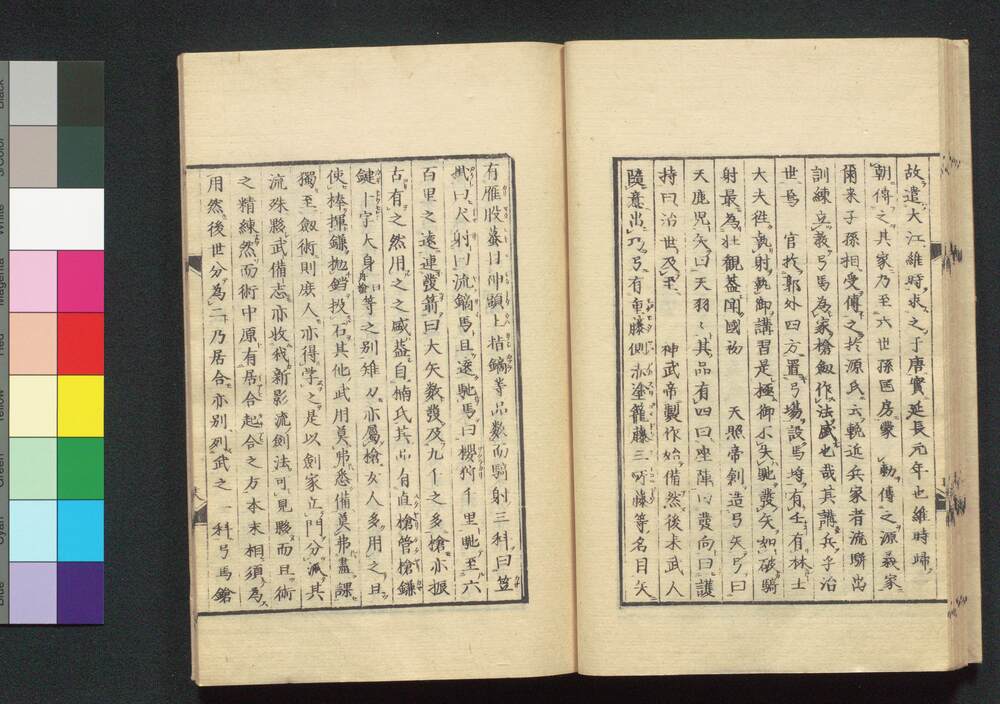 故遣大江維時求之于唐實延長元年也維時歸
朝傳之其家乃至六世孫匡房蒙 勅傳之源義家
爾来子孫相受傳之於源氏云輓近兵家者流駢出
訓練立義弓馬為家槍劔作法盛也哉其講兵乎治
世焉 官於郭外四方置弓場設馬埒有壬有林士
大夫徃執射執御講習是極御不失馳發矢如破騎
射最為壮觀葢聞國初 天照帝創造弓矢弓曰
天鹿兒矢曰天羽〻其品有四曰座陣曰發向曰護
持曰治世及至 神武帝製作始備然後末武人
隨意出乃弓有重藤側赤塗籠藤三所藤等名目矢
有雁股蟇目神頭上指鏑等品数而騎射三科曰笠
掛曰犬射曰流鏑馬且遠馳馬曰櫻狩千里馳至六
百里之遠連發箭曰大矢数發及九千之多槍亦振
古有之然用之之盛葢自楠氏其品有直槍管槍鎌
鍵十字大身等之别雉刀亦屬槍女人多用之且
使棒揮鎌抛鎖投石其他武用莫弗悉備莫弗盡課
獨至劔術則庶人亦得學之是以劍家立門分派其
流殊夥武備志亦收我新影流劍法可見夥而且術
之精練然而術中原有居合起合之方本末相須為
用然後世分為二乃居合亦别列武之一科弓馬鎗